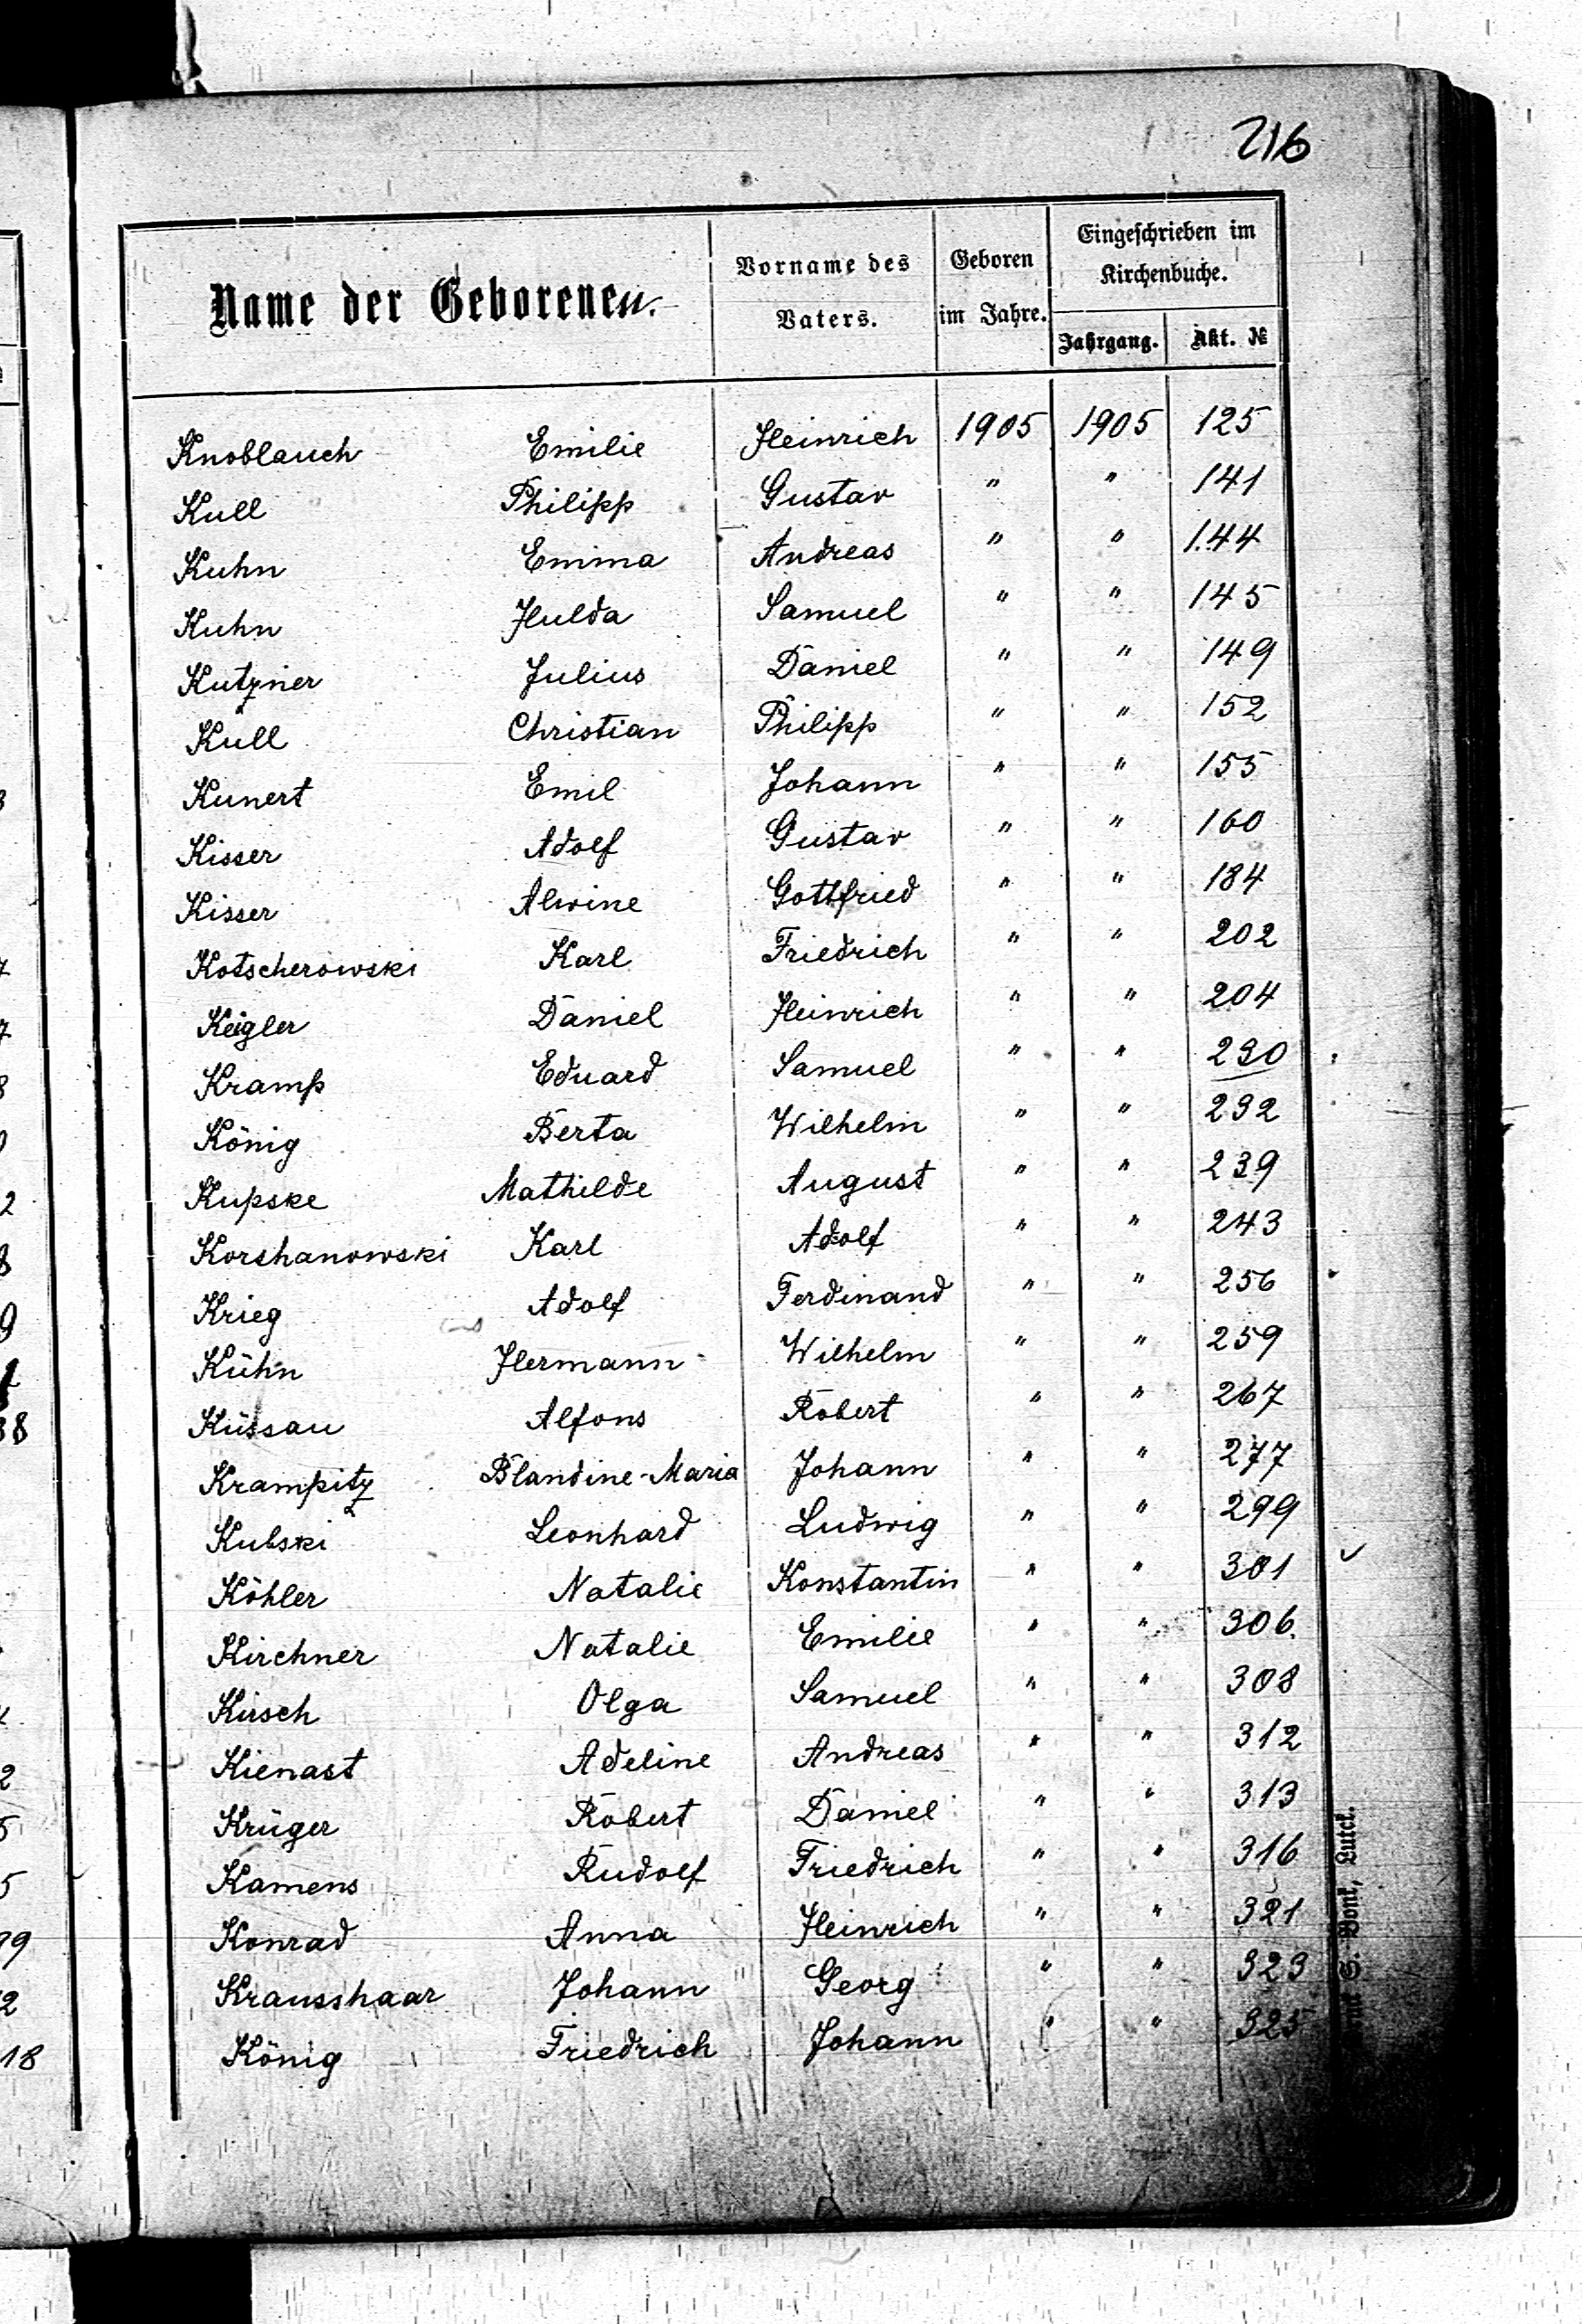 216
Name der Geborenen.
Vorname des Vaters.
Geboren im Jahre.
Eingeschrieben im Kirchenbuche.
Jahrgang.
Akt. №
Knoblauch Emilie Heinrich 1905 1905 125
Kull Philipp Gustav " " 141
Kuhn Emma Andreas " " 144
Kuhn Hulda Samuel " " 145
Kutzner Julius Daniel " " 149
Kull Christian Philipp " " 152
Kunert Emil Johann " " 155
Kisser Adolf Gustav " " 160
Kisser Alwine Gottfried " " 184
Kotscherowski Karl Friedrich " " 202
Keigler Daniel Heinrich " " 204
Kramp Eduard Samuel " " 230
König Berta Wilhelm " " 232
Kupske Mathilde August " " 239
Korshanowski Karl Adolf " " 243
Krieg Adolf Ferdinand " " 256
Kühn Hermann Wilhelm " " 259
Küssau Alfons Robert " " 267
Krampitz Blandine-Maria Johann " " 277
Kubski Leonhard Ludwig " " 299
Köhler Natalie Konstantin " " 301
Kirchner Natalie Emilie " " 306
Kirsch Olga Samuel " " 308
Kienast Adeline Andreas " " 312
Krüger Robert Daniel " " 313
Kamens Rudolf Friedrich " " 316
Konrad Anna Heinrich " " 321
Krausshaar Johann Georg " " 323
König Friedrich Johann " " 325